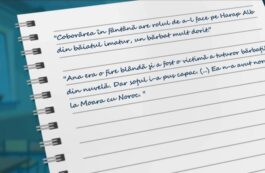 "Coborârea în fântână are rolul de a-l face pe Harap Alb
din băiatul imatur, un bărbat mult dorit"
"Ana era o fire blândă și a fost o victimă a tuturor bărbați
din nuvelă. Dar soțul i-a pus capac. (..) Ea n-a avut noro
la Moara cu Noroc. "